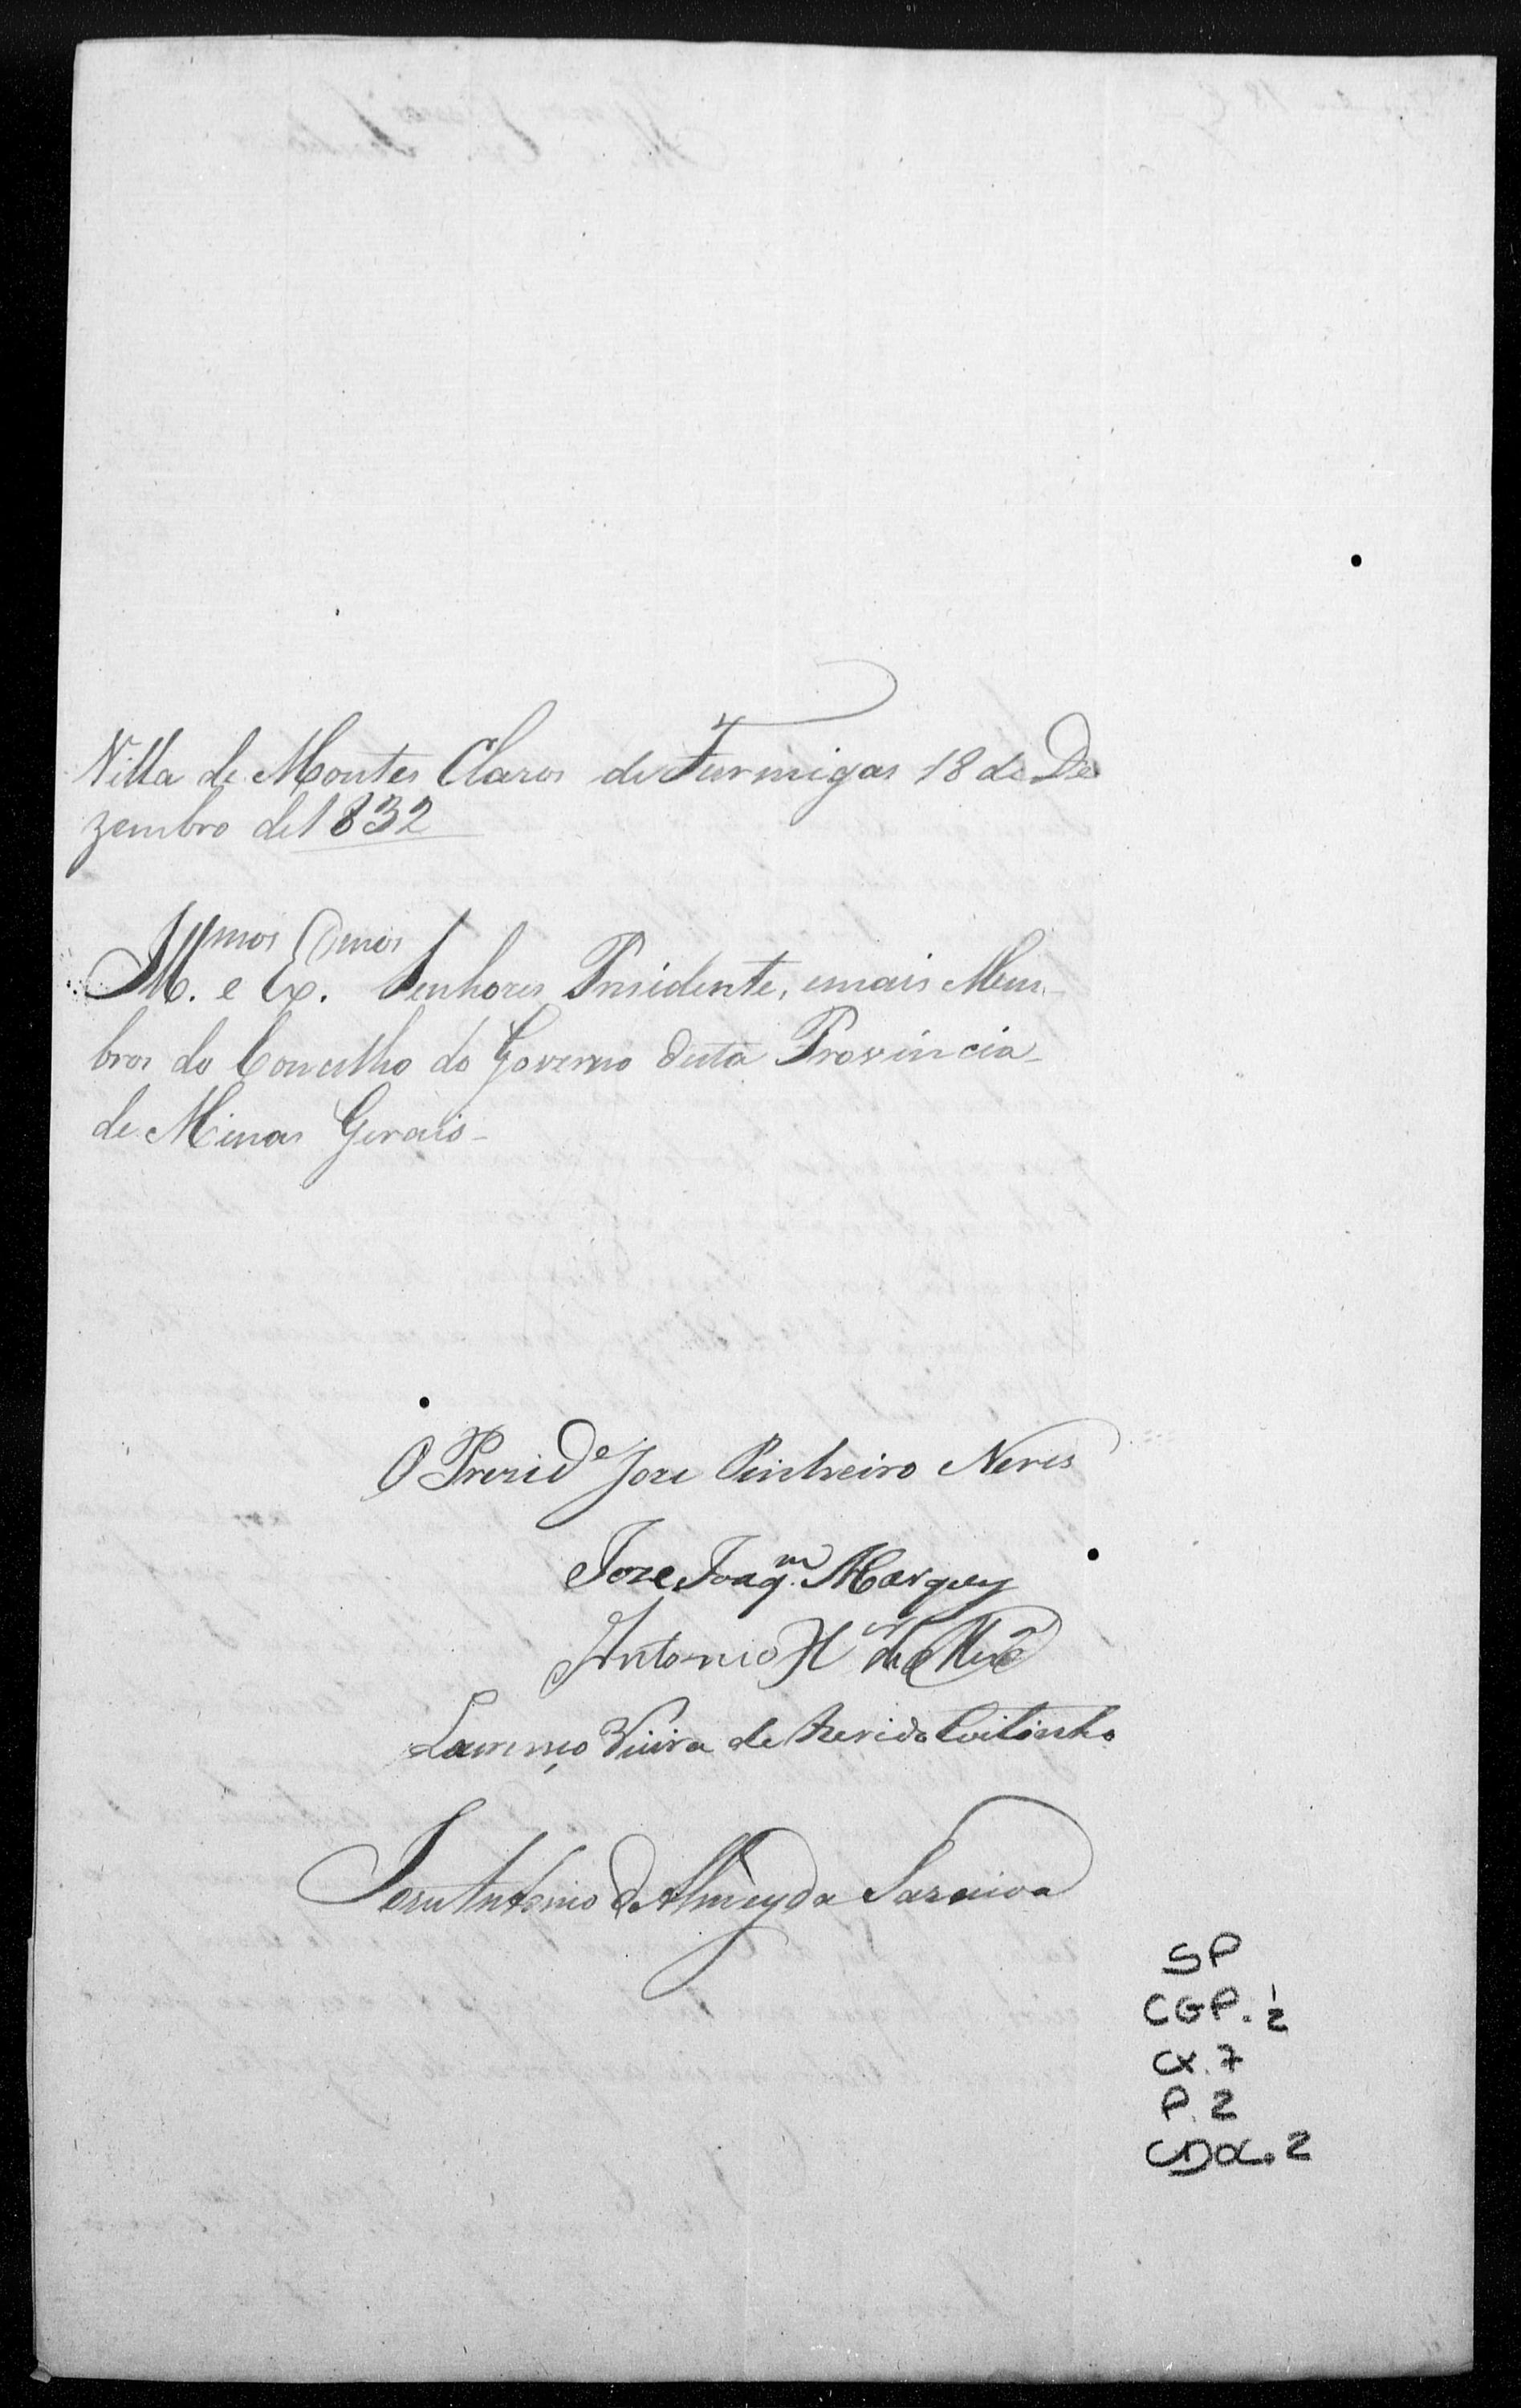 Villa de Montes Claros de Furmigas 18 de De
zembro de 1832
Illmos e Exmos Senhores Presidente, e mais Mem
bros do Concelho do Governo desta Provincia
de Minas Gerais
O Prezide Joze Pinheiro Neves
Joze Joaqm. Marques
Antonio de
Lourenço Vieira de Azeredo Coitinho
Joze Antonio de Almeyda Saraiva
SP
CGP. 1/2
CX. 7
P. 2
2